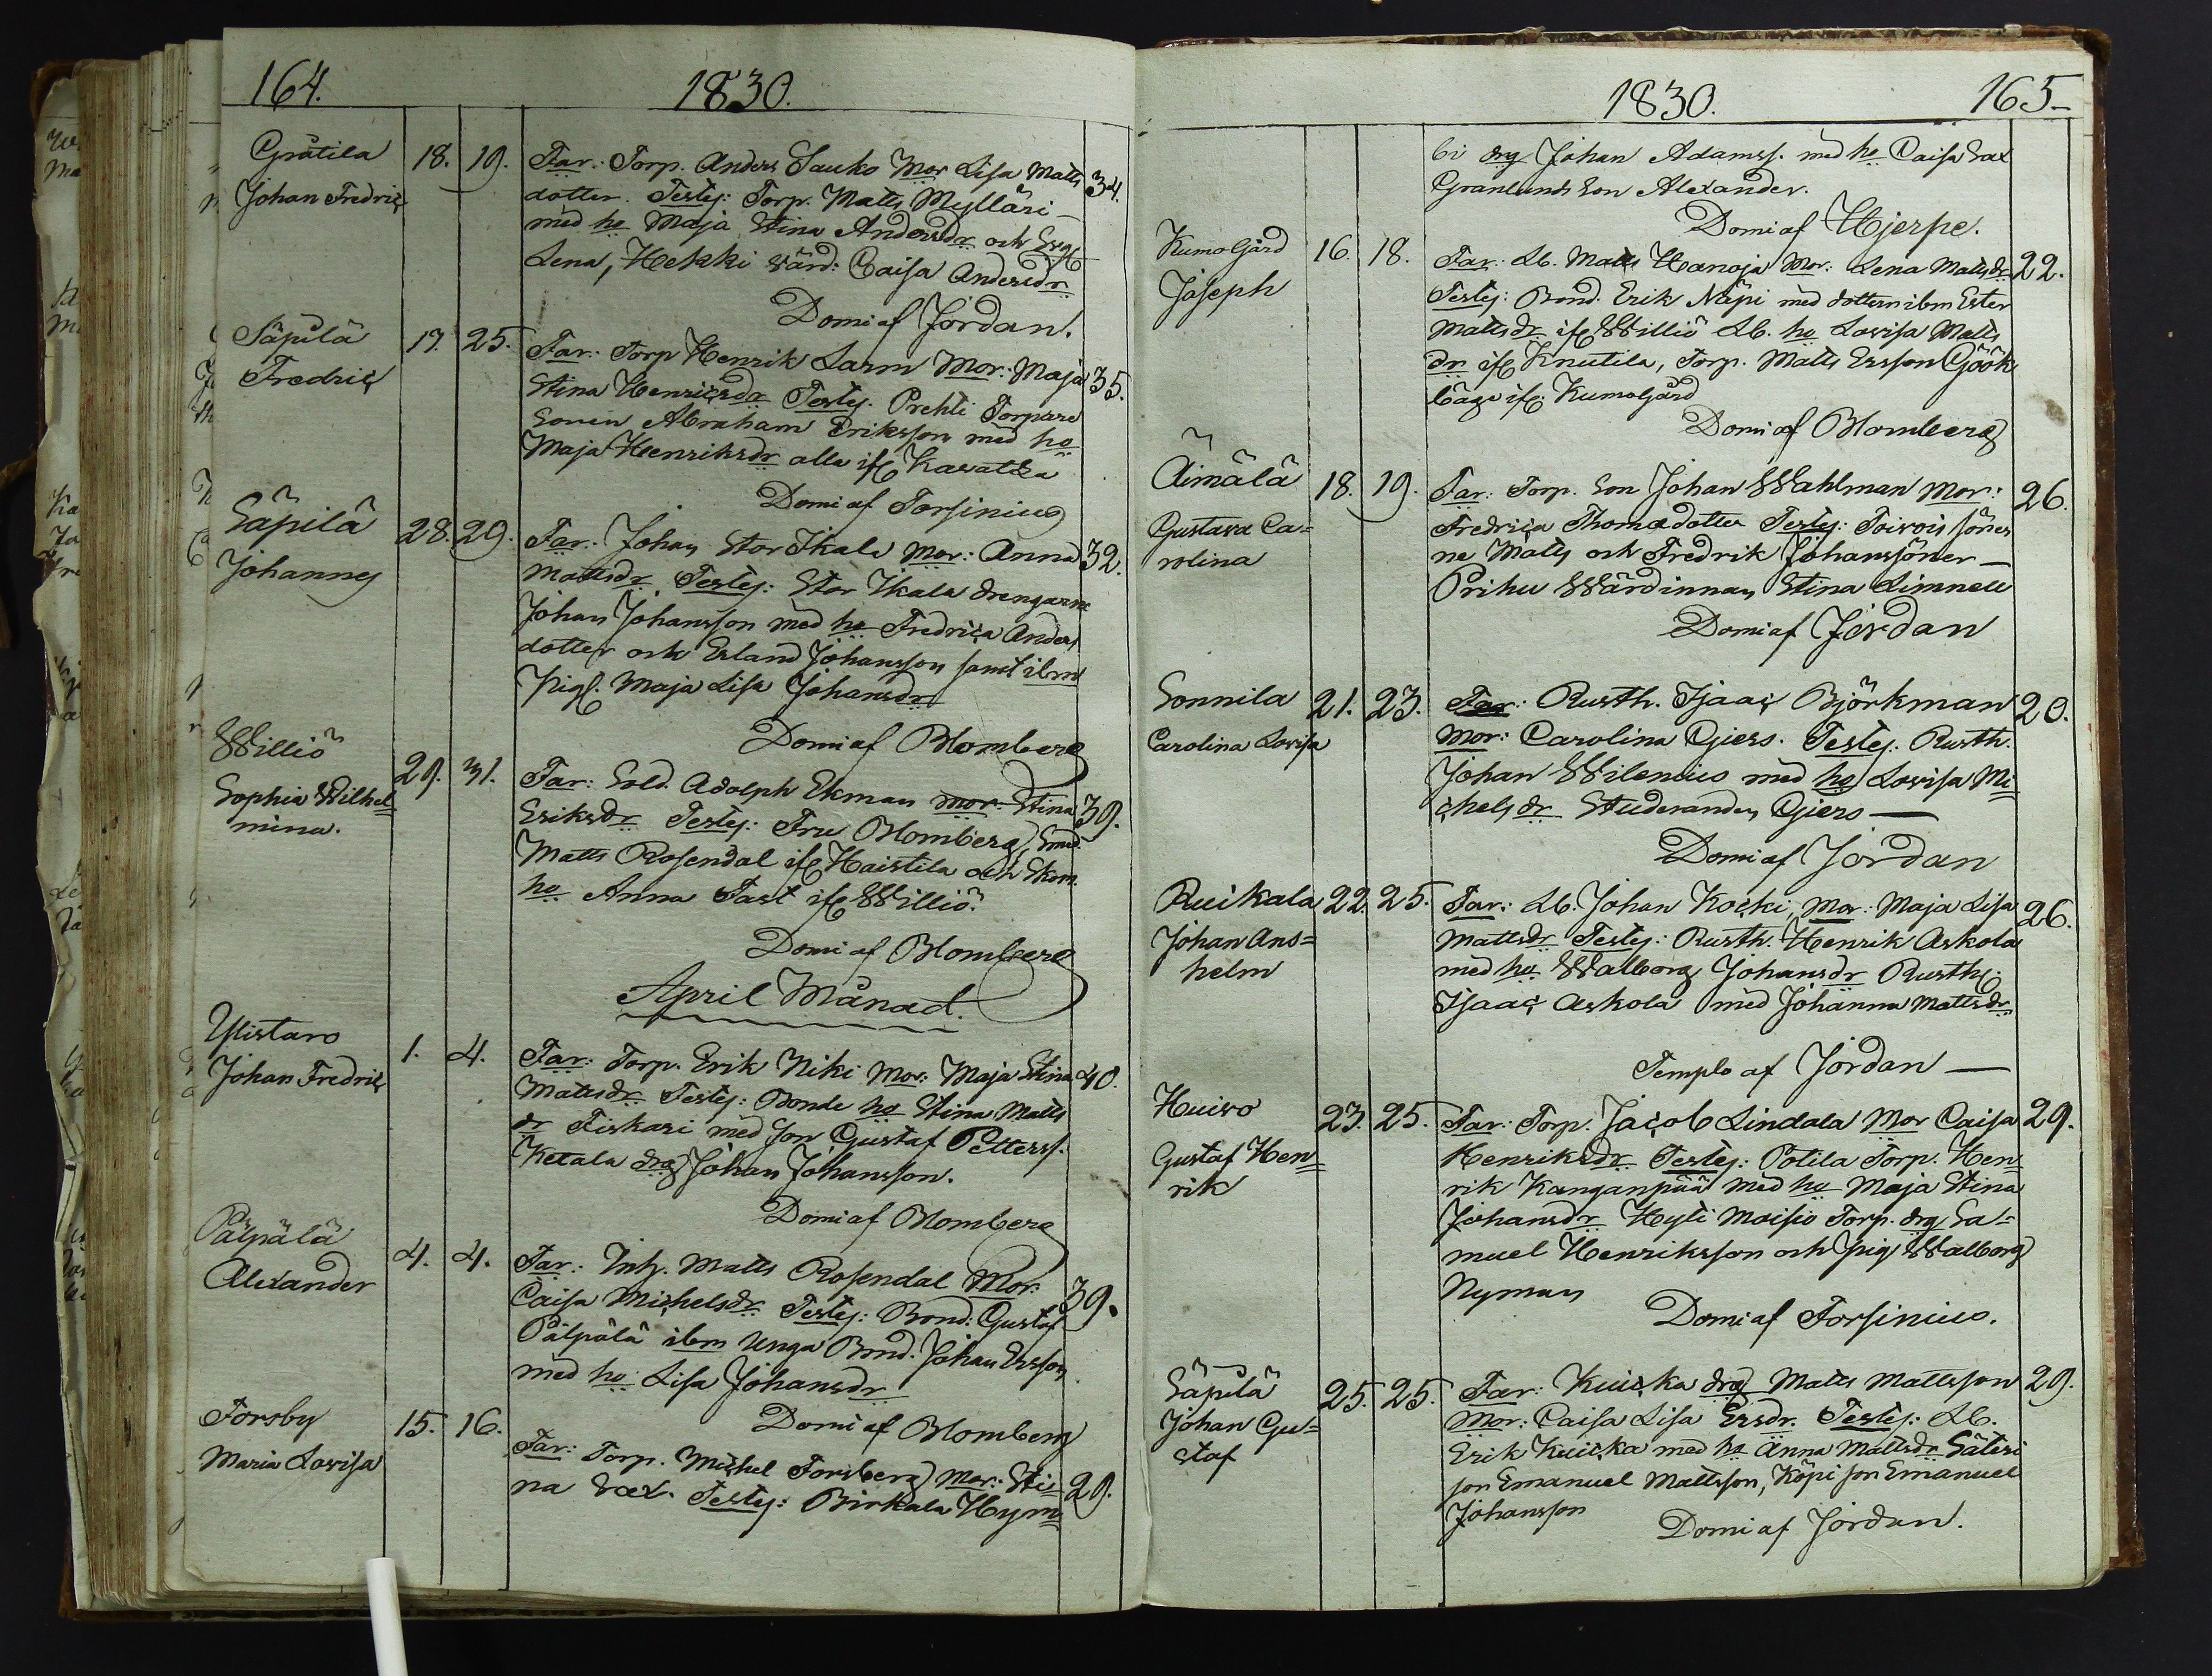 164.
1830.
Gråtila 18. 19. Far: Torp. Anders Sauko Mor Lisa Matts 34.
Johan Fredric dotter. Testes: Torp. Matts Mylläri
med ho Maja Stina Andersdr och
Lena, Hekki wärd: Caisa Andersdr
Domi af Jordan.
Säpilä 19. 25. Far: Torp Henrik Larm Mor: Maja 35.
Fredric Stina Henricsdr Testes. Prehti Torpare
Sonen Abraham Eriksson med ho
Maja Henriksdr alla if Kawattia
Domi af Forsinius
Säpilä 28. 29. Far: Johan Stor Ikala Mor: Anna 32.
Johannes Mattsdr Testes: Stor Ikala drengarne
Johan Johansson med ho Fredrica Anders
dotter och Erland Johansson samt ibm
Pigs. Maja Lisa Johansdr
Domi af Blomberg
Williö 29. 31. Far: Sold. Adolph Ekman Mor: Stina 39.
Sophia Wilhel= Eriksdr Testes: Fru Blomberg, Smed.
mina. Matts Rosendal if Haistila och Skom.
ho Anna Fast if Williö.
Domi af Blomberg
April Månad.
Ylistaro 1. 4. Far: Torp. Erik Niki Mor: Maja Stina 40.
Johan Fredric Mattsdr Testes: Bonde ho Stina Matts
dr Fiskari med son Gustaf Petterss.
Ketala drg Johan Johansson.
Domi af Blomberg
Pälpälä 4. 4. Far: Inh. Matts Rosendal Mor: 39.
Alexander Caisa Michelsdr Testes: Bond: Gustaf
Pälpälä ibm Unga Bond. Johan Ersson
med ho Lisa Johansdr
Domi af Blomberg
Forsby 15. 16. Far: Torp. Michel Forsberg Mor: Sti= 29.
Maria Lovisa na Sax. Testes: Birkala Hym=
1830.
165
bi drg Johan Adamss. med ho Caisa Sax
Granlunds Son Alexander.
Domi af Hjerpe.
Kumogård 16. 18. Far: Lb. Matts Hanoja Mor: Lena Mattsdr 22.
Joseph Testes: Bond. Erik Näpi med dottern ibm Ester
Mattsdr if Williö Lb. ho Lovisa Matts
dr if Knutila, Torp. Matts Ersson Gjök
båge if. Kumogård
Domi af Blomberg
Äimälä 18. 19. Far: Torp. Son Johan Wahlman Mor: 26.
Gustava Ca= Fredrica Thomadotter Testes: Toivois söner
rolina ne Matts och Fredrik Johanssöner
Prihu Wärdinnan Stina Limnell
Domi af Jordan
Sonnila 21. 23. Far: Rusth. Isaac Björkman 20.
Carolina Lovisa Mor: Carolina Gjers. Testes: Rusth.
Johan Wilenius med ho Lovisa Mi=
chelsdr Studeranden Gjers
Domi af Jordan
Ruikala 22. 25. Far: Lb. Johan Kocki, Mor: Maja Lisa 26.
Johan Ans= Mattsdr Testes: Rusth. Henrik Askola
helm med ho Walborg Johansdr Rusths.
Isaac Askola med Johanna Mattsdr
Templo af Jordan
Huiwo 23. 25. Far: Torp. Jacob Lindala Mor Caisa 29.
Gustaf Hen= Henriksdr Testes: Potila Torp. Hen=
rik rik Kanganpää med ho Maja Stina
Johansdr Hyti Moisio Torp. drg Sa=
muel Henriksson och pig Walborg
Nyman
Domi af Forsinius.
Säpilä 25. 25. Far: Kuicka drg Matts Mattsson 29.
Johan Gu= Mor: Caisa Lisa Ersdr. Testes: Lb.
staf Erik Kuicka med ho Anna Mattsdr Säteri
son Emanuel Mattsson, Köpi son Emanuel
Johansson
Domi af Jordan.